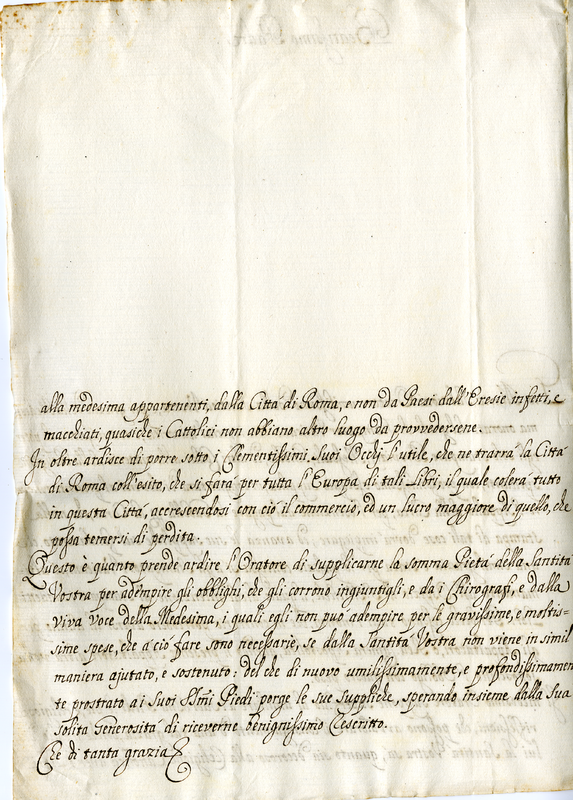 alla medesima appartenenti, dalla Città di Roma, e non da Paesi dall'Eresie infetti, e
macchiati, quasiche i Cattolici non abbiano altro luogo da provvedersene.
In oltre ardisce di porre sotto i Clementissimi Suoi Occhj l'utile, che ne trarrà la Città
di Roma coll'esito, che si farà per tutta l'Europa di tali Libri, il quale colerà tutto
in questa Città, accrescendosi con ciò il commercio, ed un lucro maggiore di quello, che
possa temersi di perdita.
Questo è quanto prende ardire l'Oratore di supplicarne la somma Pietà della Santità
Vostra per adempire gli obblighi, che gli corrono ingiuntigli, e da i Chirografi, e dalla
viva voce della Medesima, i quali egli non può adempire per le gravissime, e moltis=
sime spese, che a ciò fare sono necessarie, se dalla Santità Vostra non viene in simil
maniera ajutato, e sostenuto: del che di nuovo umilissimamente, e profondissimamen
te prostrato ai Suoi SSmi Piedi porge le sue suppliche, sperando insieme dalla Sua
solita Generosità di riceverne benignissimo Rescritto.
Che di tanta grazia
Beatissimo Padre